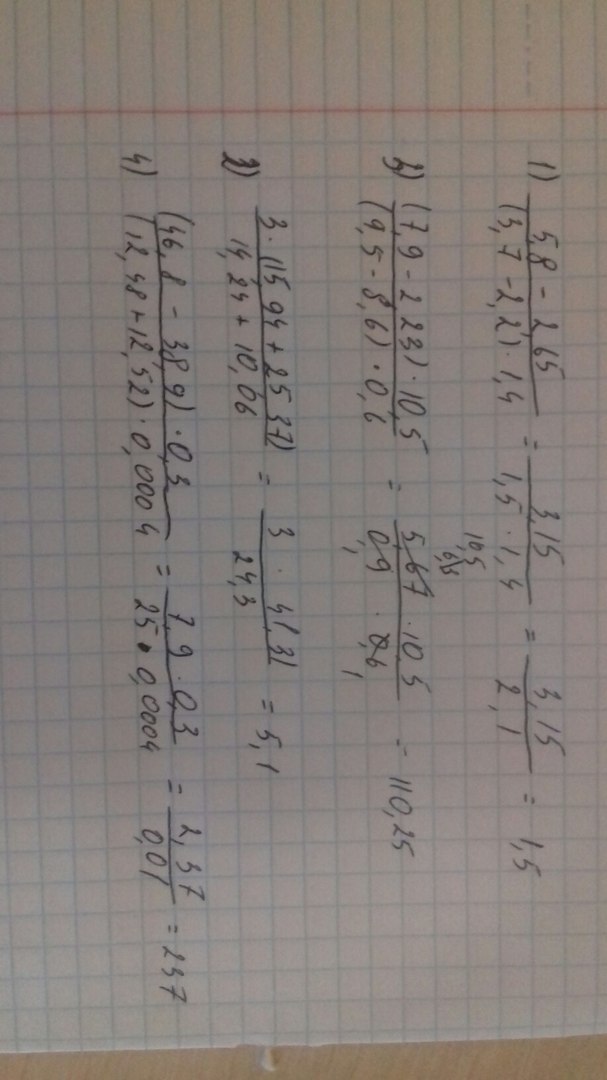 1) 5,8 - 2,65 / (3,7 - 2,2) · 1,4 = 3,15 / 1,5 · 1,4 = 3,15 / 2,1 = 1,5
10,5
6,3
3) (7,9 - 2,23) · 10,5 / (9,5 - 8,6) · 0,6 = 5,67 · 10,5 / 0,9 · 0,6 = 110,25
1 1
2) 3 · (15,94 + 25,37) / 14,24 + 10,06 = 3 · 41,31 / 24,3 = 5,1
4) (46,8 - 38,9) · 0,3 / (12,48 + 12,52) · 0,0004 = 7,9 · 0,3 / 25 · 0,0004 = 2,37 / 0,01 = 237